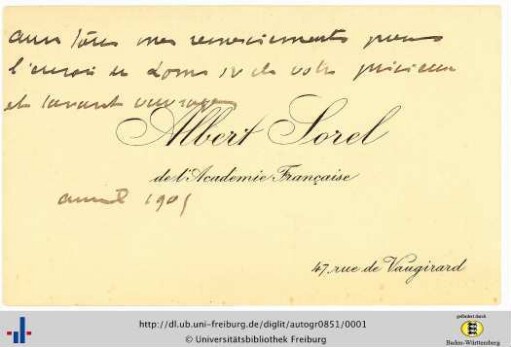 avec tous mes remerciements pour
l'envoi du tome IV de votre précieux
et savant ouvrage
Albert Sorel
de l'Academie Française
1905
47, rue de Vaugirard
http://dl.ub.uni-freiburg.de/diglit/autogr0851/0001
© Universitätsbibliothek Freiburg
gefördert durch
Baden-Württemberg